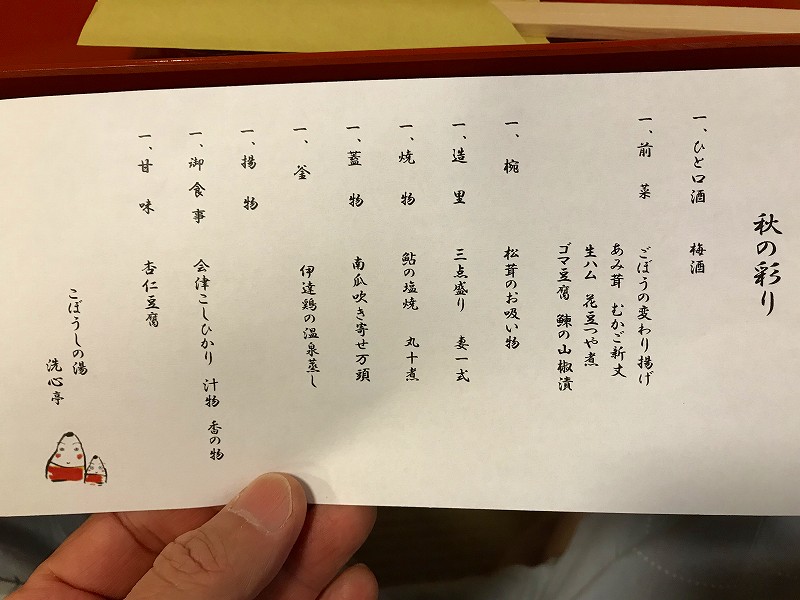 秋の彩り
一、ひと口酒　梅酒
一、前　菜　ごぼうの変わり揚げ
あみ茸　むかご新丈
生ハム　花豆つや煮
ゴマ豆腐　鰊の山椒漬
一、椀　松茸のお吸い物
一、造　里　三点盛り　妻一式
一、焼　物　鮎の塩焼　丸十煮
一、蓋　物　南瓜吹き寄せ万頭
一、釜　伊達鶏の温泉蒸し
一、揚　物
一、御食事　会津こしひかり　汁物　香の物
一、甘　味　杏仁豆腐
こぼうしの湯
洗心亭